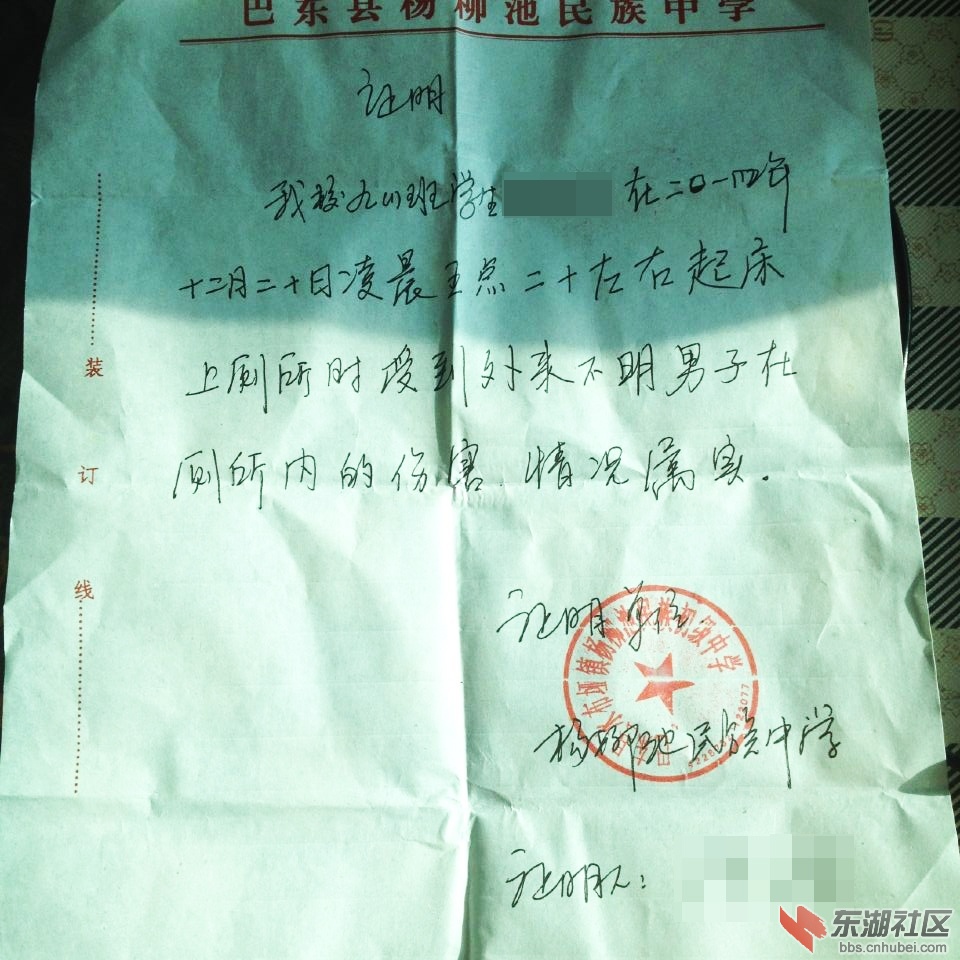 巴东县杨柳池民族中学
证明
我校九(1)班学生 在二〇一四年
十二月二十日凌晨五点二十左右起床
上厕所时受到外来不明男子在
厕所内的伤害,情况属实.
装
订
线
证明单位:
杨柳池民族中学
证明人:
东湖社区
bbs.cnhubei.com